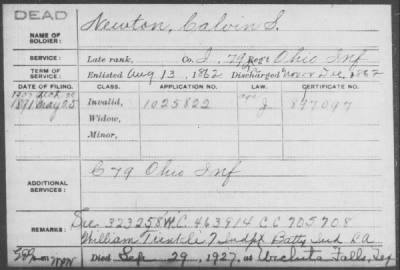 DEAD
NAME OF SOLDIER: Newton, Calvin S.
SERVICE: Late rank, Co. I, 79 Reg't Ohio Inf
TERM OF SERVICE: Enlisted Aug 13, 1862 Discharged Dec, 1862
DATE OF FILING. CLASS. APPLICATION NO. LAW. CERTIFICATE NO.
1891 May 25 Invalid, 1025822 J 897097
Widow,
Minor,
ADDITIONAL SERVICES: C 79 Ohio Inf
REMARKS: See 323258 W.C. 463914 C C 705708
William 7 Indpt Batty Ind L A
Died Sep 29, 1927, at Wichita Falls, Tex